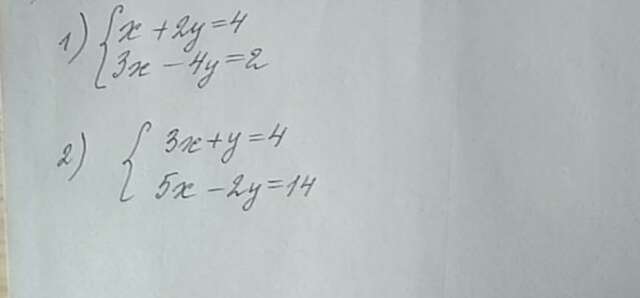 1) { x + 2y = 4
3x - 4y = 2
2) { 3x + y = 4
5x - 2y = 14